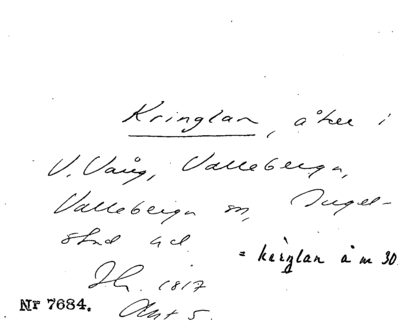 Kringlan, åker i
V. Vång, Valleberga,
Valleberga sn, Ingel-
stad hd.
= kèrglan å m 30
Sk. 1817
Akt 5
Nr 7684.